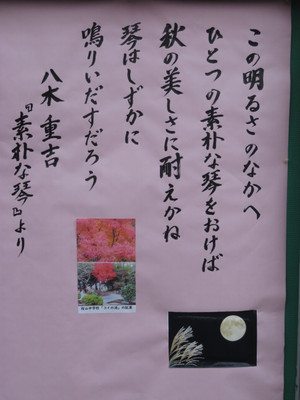 この明るさのなかへ
ひとつの素朴な琴をおけば
秋の美しさに耐えかね
琴はしずかに
鳴りいだすだろう
八木重吉
『素朴な琴』より